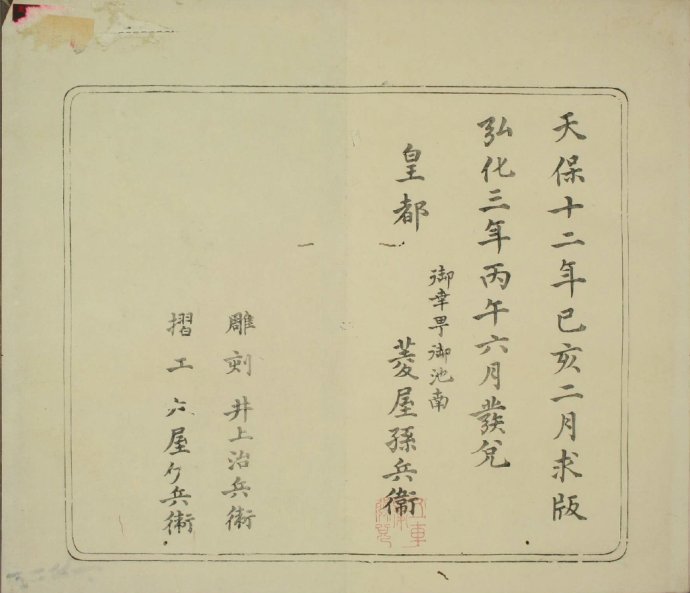 天保十二年己亥二月求版
弘化三年丙午六月發兌
皇都
御幸町御池南
菱屋孫兵衛
雕刻 井上治兵衛
摺工 屋兵衛